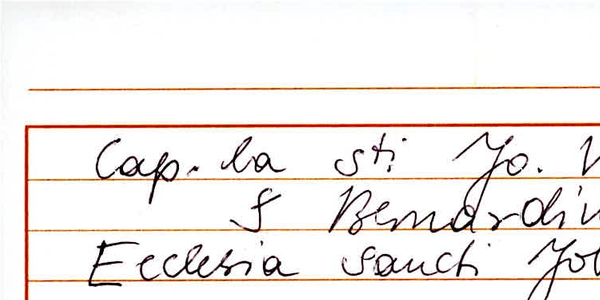 Cap.la sti Jo.
S Bernardin
Ecclesia sancti Jo